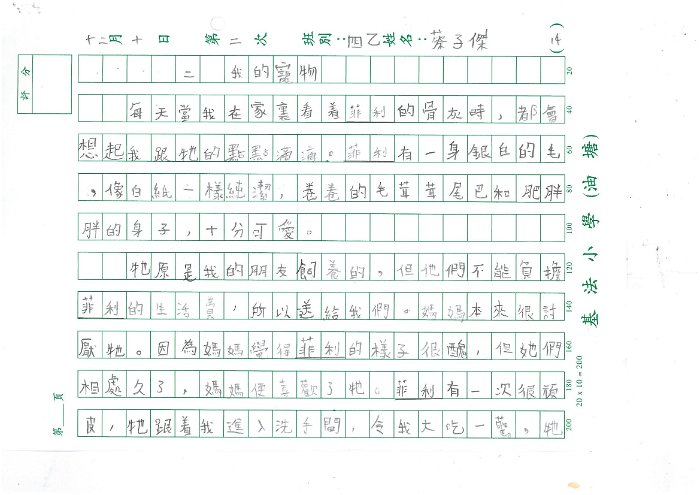 十二月十日 第二次 班別:四乙 姓名:蔡子傑 (14)
評分
二 我的寵物
每天當我在家裏看着菲利的骨灰時,都會
想起我跟牠的點點滴滴。菲利有一身銀白的毛
,像白紙一樣純潔,卷卷的毛茸茸尾巴和肥胖
胖的身子,十分可愛。
牠原是我的朋友飼養的,但他們不能負擔
菲利的生活費,所以送給我們。媽媽本來很討
厭牠。因為媽媽覺得菲利的樣子很醜,但她們
相處久了,媽媽便喜歡了牠。菲利有一次很頑
皮,牠跟着我進入洗手間,令我大吃一驚。牠
20
40
60
80
100
120
140
160
180
200
基法小學(油塘)
20 x 10 = 200
第 頁